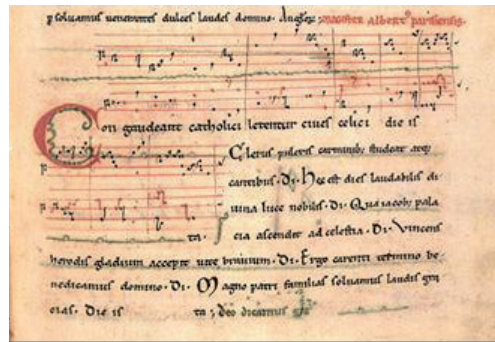 psoluamus uenerantes dulces laudes domino. magister Albertꝰ parisiensis.
Congaudeant catholici letentur ciues celici die is
Clerus pulcris carminibꝫ studeat atqꝫ
cantibus. Di. Hec est dies laudabilis di
uina luce nobilis. Di. Qua iacobꝫ pala
ta. cia ascendit ad celestia. Di. Vincens
herodis gladium accepit uite brauium. Di. Ergo carenti termino be
nedicamus domino. Di. Magno patri familias soluamus laudis gra
cias. Die is ta; deo dicamus